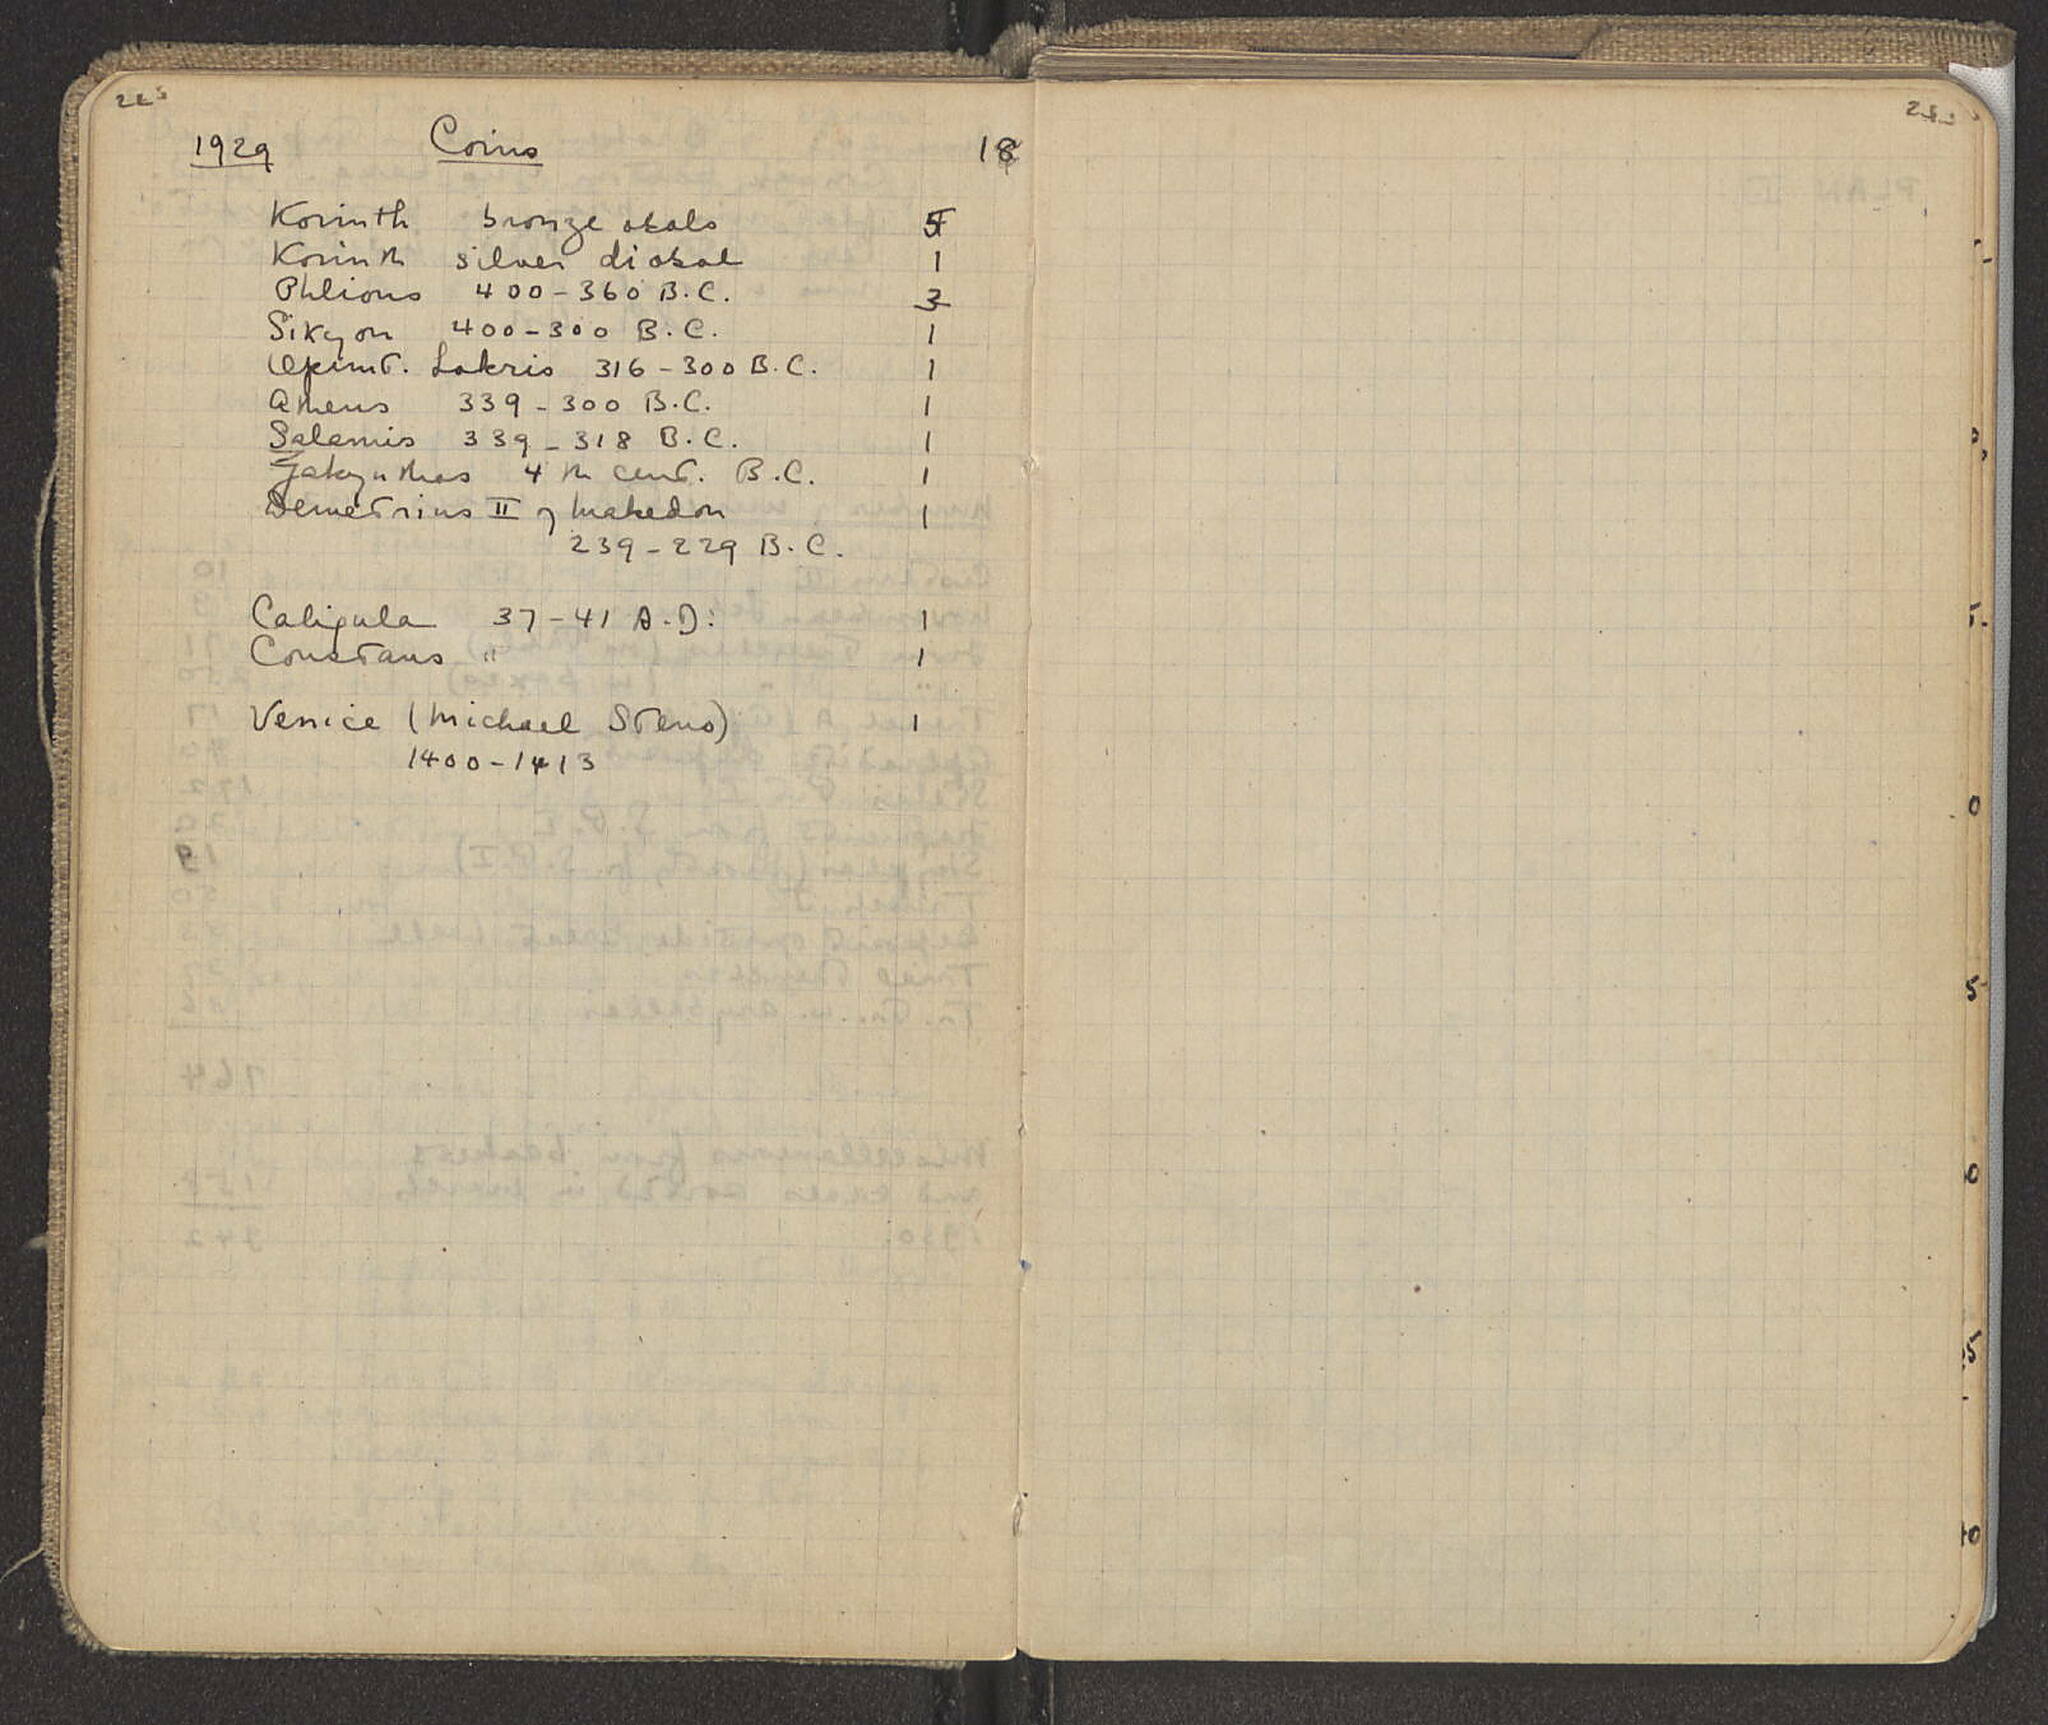 1929 Coins 18
Korinth bronze obols 5
Korinth silver diobol 1
Phlious 400-360 B.C. 3
Sikyon 400-300 B.C. 1
Opunt. Lokris 316-300 B.C. 1
Athens 339-300 B.C. 1
Salamis 339-318 B.C. 1
Zakynthos 4th cent. B.C. 1
Demetrius II of Makedon 1
239-229 B.C.
Caligula 37-41 A.D. 1
Constans " 1
Venice (Michael Steno) 1
1400-1413